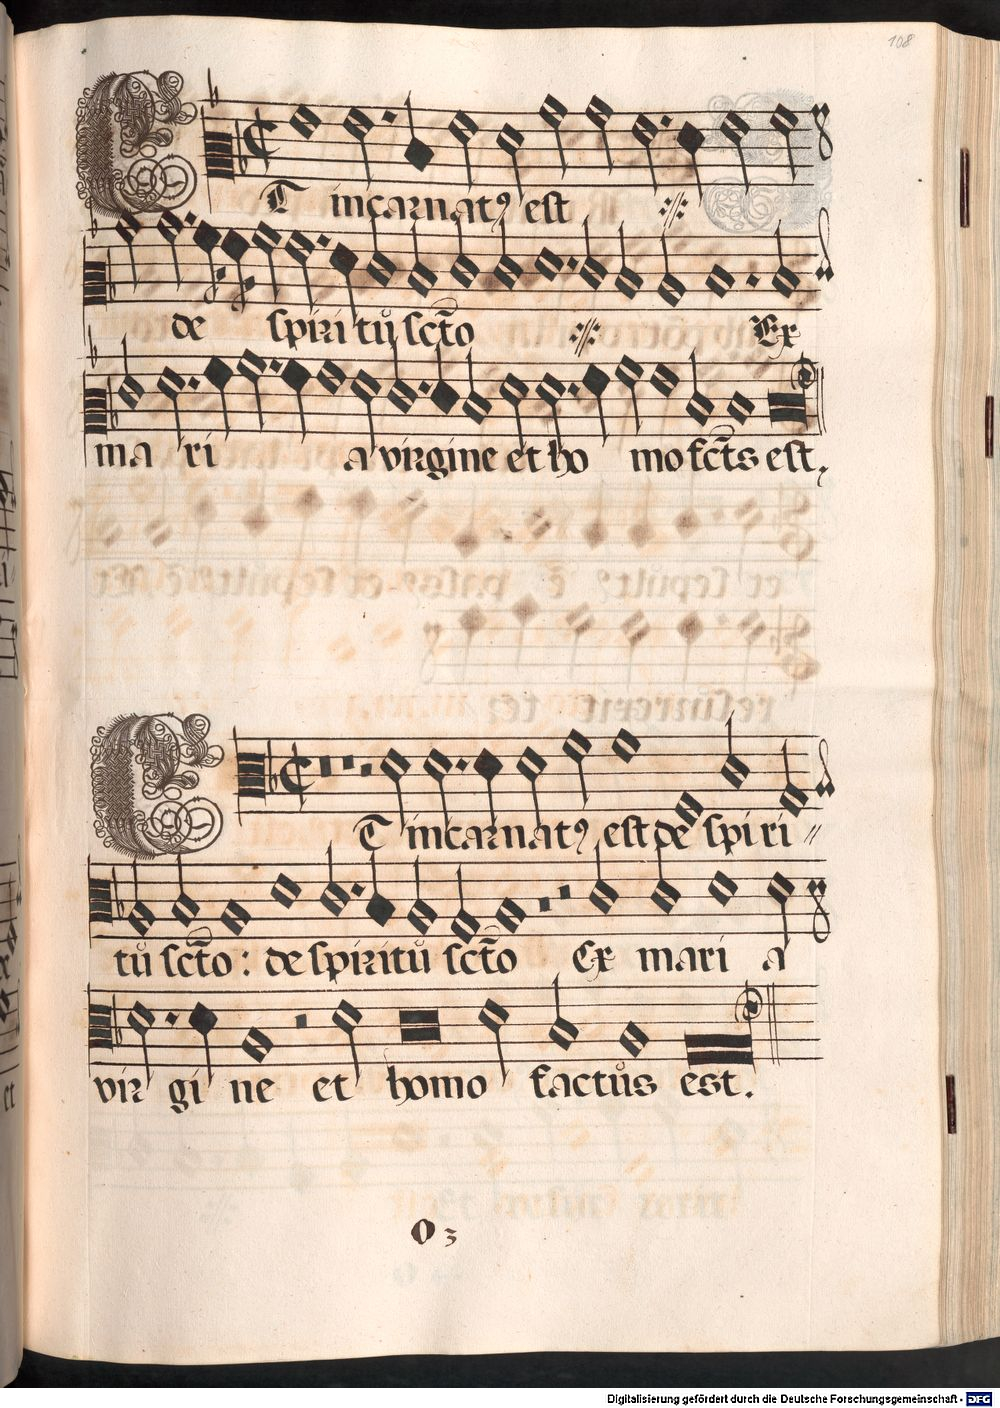 108
ET incarnatꝰ est
de spiritů sc̃to Ex
ma ri a virgine et ho mo fc̃ts est,
ET incarnatꝰ est de spi ri
tů sc̃to: de spiritů sc̃to Ex mari a
vir gi ne et homo factůs est.
O 3
Digitalisierung gefördert durch die Deutsche Forschungsgemeinschaft - DFG